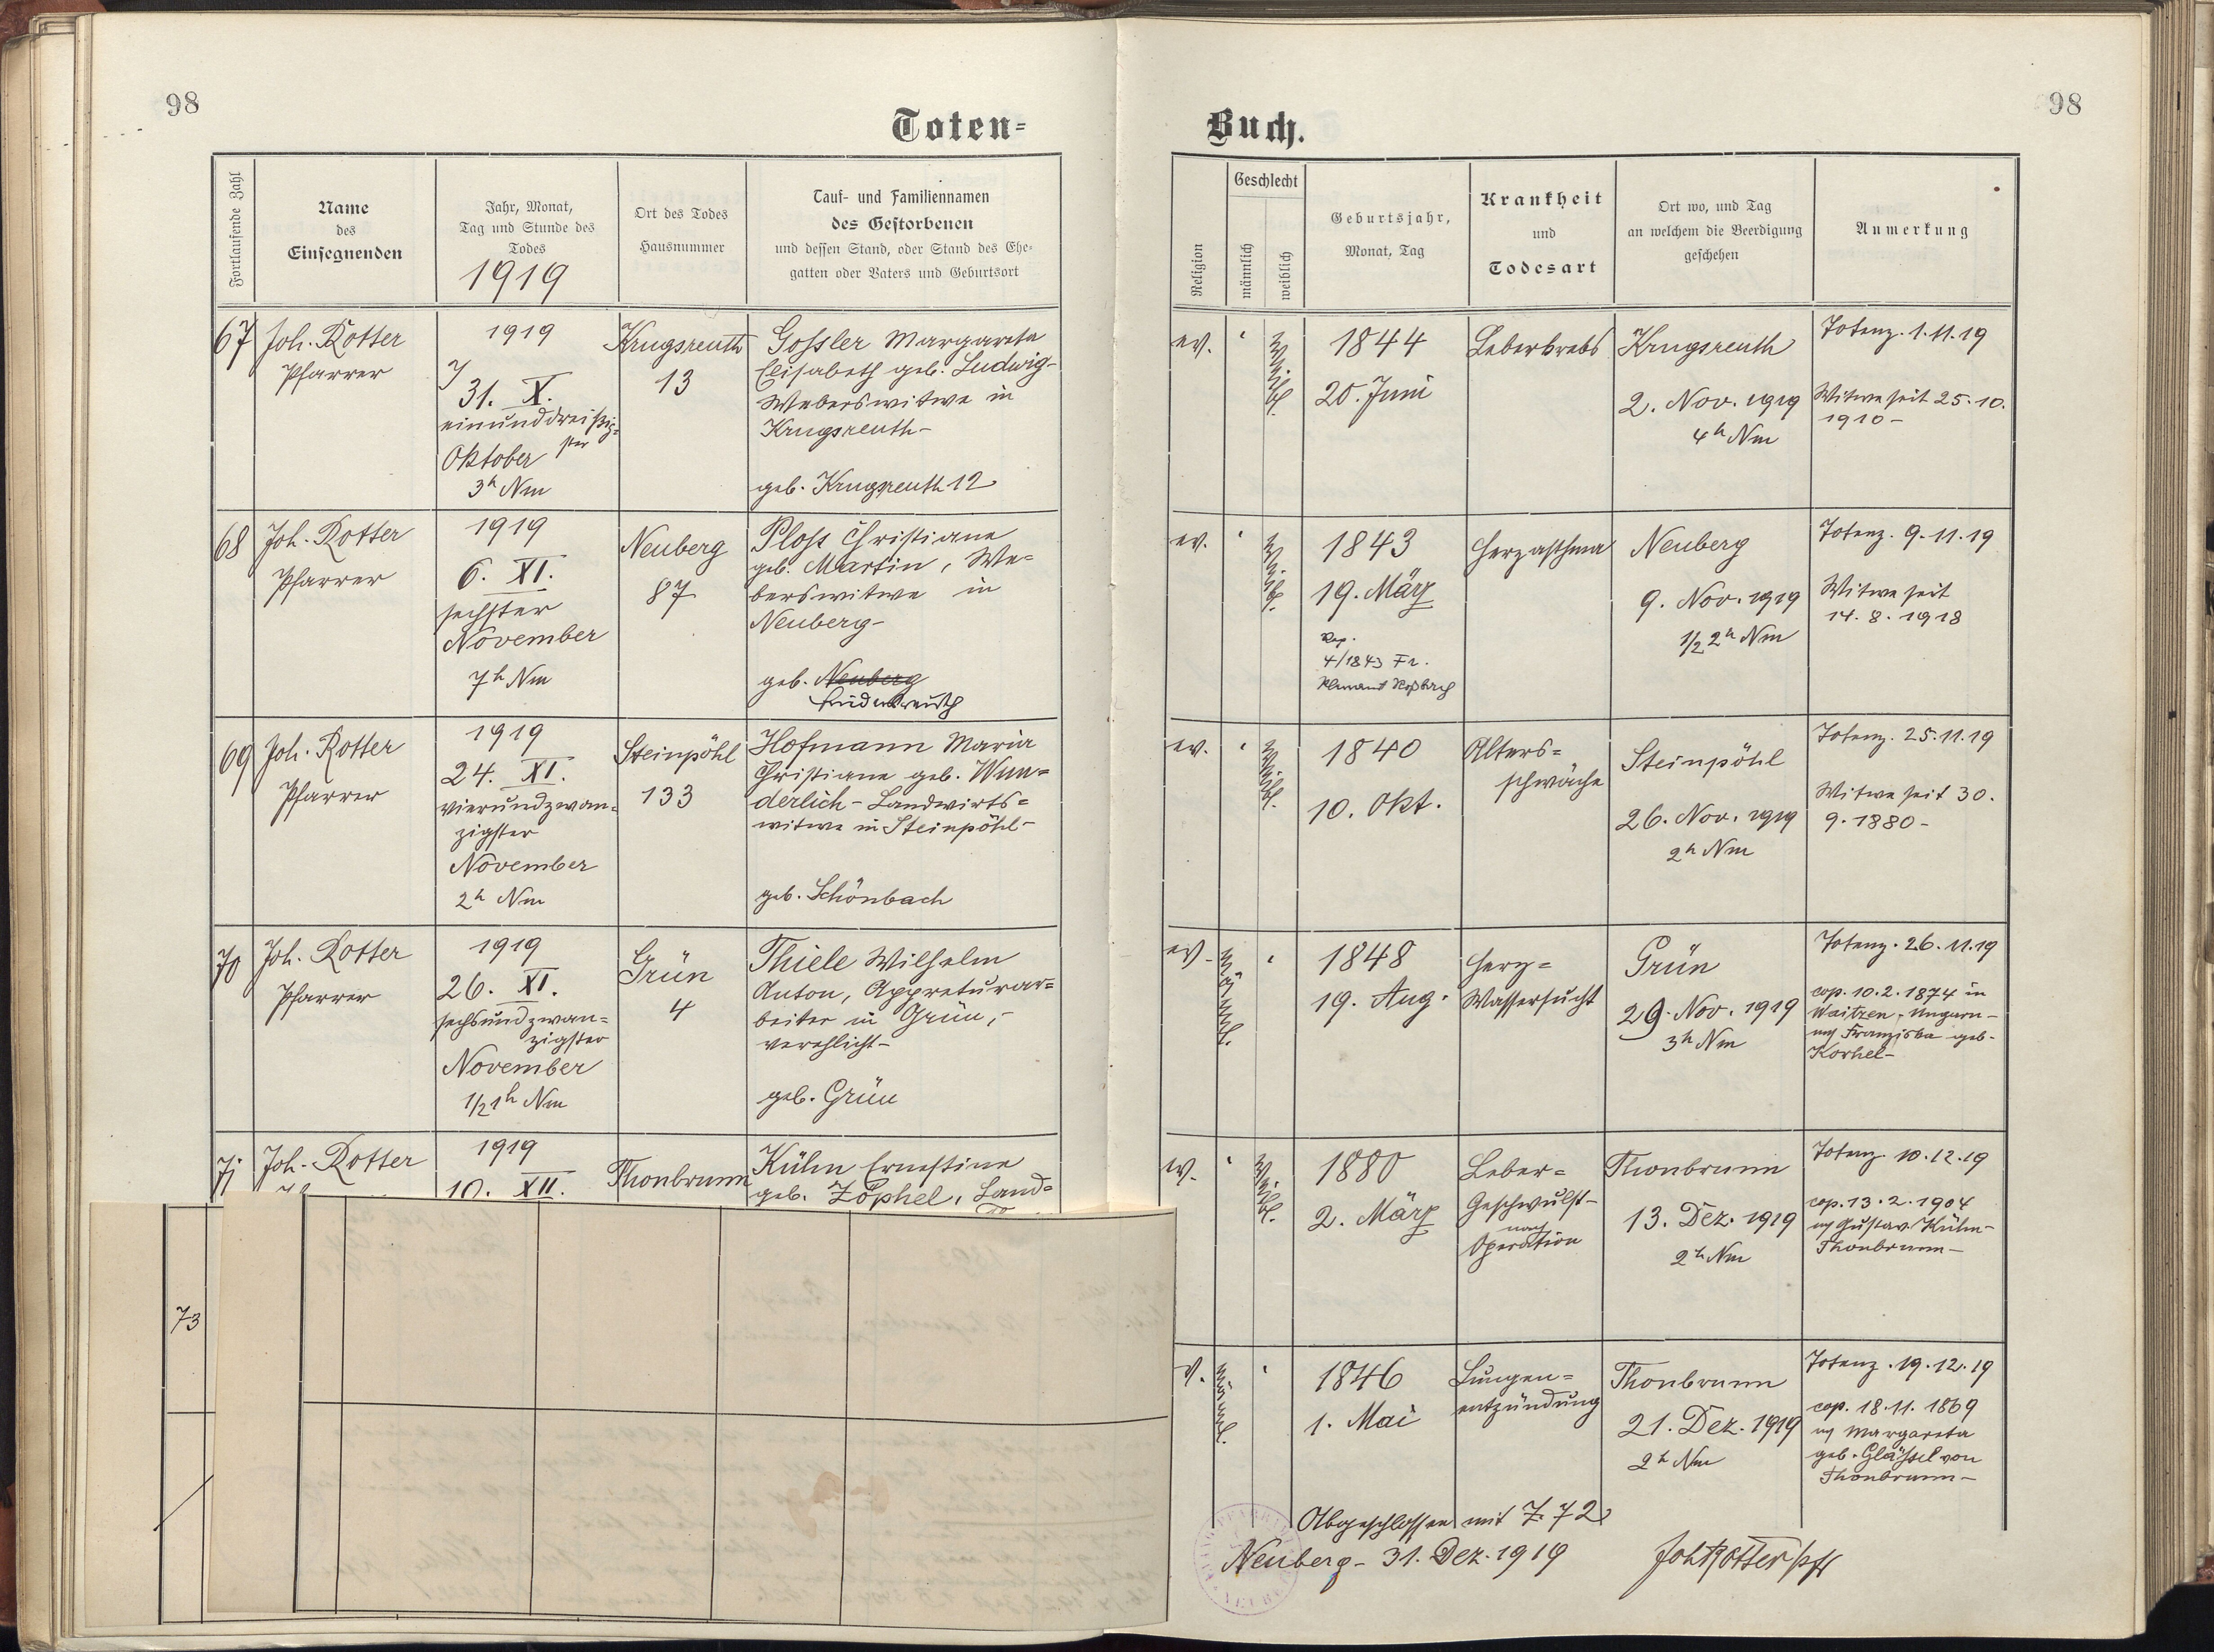 98
Toten-
Fortlaufende Zahl
Name
des
Einsegnenden
Jahr, Monat,
Tag und Stunde des
Todes
1919
Ort des Todes
Hausnummer
Tauf- und Familiennamen
des Gestorbenen
und dessen Stand, oder Stand des Ehe-
gatten oder Vaters und Geburtsort
67
Joh. Rotter
Pfarrer
1919
31. X.
einunddreißig-
ster
Oktober
3h Nm
Krugsreuth
13
Gossler Margareta
Elisabeth geb. Ludwig-
Weberswitwe in
Krugsreuth-
geb. Krugsreuth 12
68
Joh. Rotter
Pfarrer
1919
6. XI.
sechster
November
7h Nm
Neuberg
87
Ploss Christiane
geb. Martin, We-
berswitwe in
Neuberg-
geb. Neuberg
69
Joh. Rotter
Pfarrer
1919
24. XI.
vierundzwan-
zigster
November
2h Nm
Steinpöhl
133
Hofmann Maria
Christiane geb. Wun-
derlich - Landwirts-
witwe in Steinpöhl-
geb. Schönbach
70
Joh. Rotter
Pfarrer
1919
26. XI.
sechsundzwan-
zigster
November
1/21h Nm
Grün
4
Thiele Wilhelm
Anton, Appreturar-
beiter in Grün,-
verehlicht-
geb. Grün
71
Joh. Rotter
1919
10. XII.
Thonbrunn
Kühn Ernestine
geb. Zöphel, Land-
73
98
Buch.
Religion
Geschlecht
männlich
weiblich
Geburtsjahr,
Monat, Tag
Krankheit
und
Todesart
Ort wo, und Tag
an welchem die Beerdigung
geschehen
Anmerkung
ev.
weibl.
1844
20. Juni
Leberkrebs
Krugsreuth
2. Nov. 1919
4h Nm
Totenz. 1.11.19
Witwe seit 25.10.
1910-
ev.
weibl.
1843
19. März
4/1843 Fr.
Herzasthma
Neuberg
9. Nov. 1919
1/2 2h Nm
Totenz. 9.11.19
Witwe seit
14.8.1918
ev.
weibl.
1840
10. Okt.
Alters-
schwäche
Steinpöhl
26. Nov. 1919
2h Nm
Totenz. 25.11.19
Witwe seit 30.
9.1880-
ev.
männl.
1848
19. Aug.
Herz-
Wassersucht
Grün
29. Nov. 1919
3h Nm
Totenz. 26.11.19
cop. 10.2.1874 in
Waitzen - Ungarn-
Franziska geb.
Korhel-
ev.
weibl.
1880
2. März
Leber-
Geschwulst-
nach
Operation
Thonbrunn
13. Dez. 1919
2h Nm
Totenz. 10.12.19
cop. 13.2.1904
Gustav Kühn-
Thonbrunn-
männl.
1846
1. Mai
Lungen-
entzündung
Thonbrunn
21. Dez. 1919
2h Nm
Totenz. 19.12.19
cop. 18.11.1869
Margareta
geb. Glässel von
Thonbrunn-
Abgeschlossen mit Z. 72
Neuberg - 31. Dez. 1919
Joh Rotter Pfr